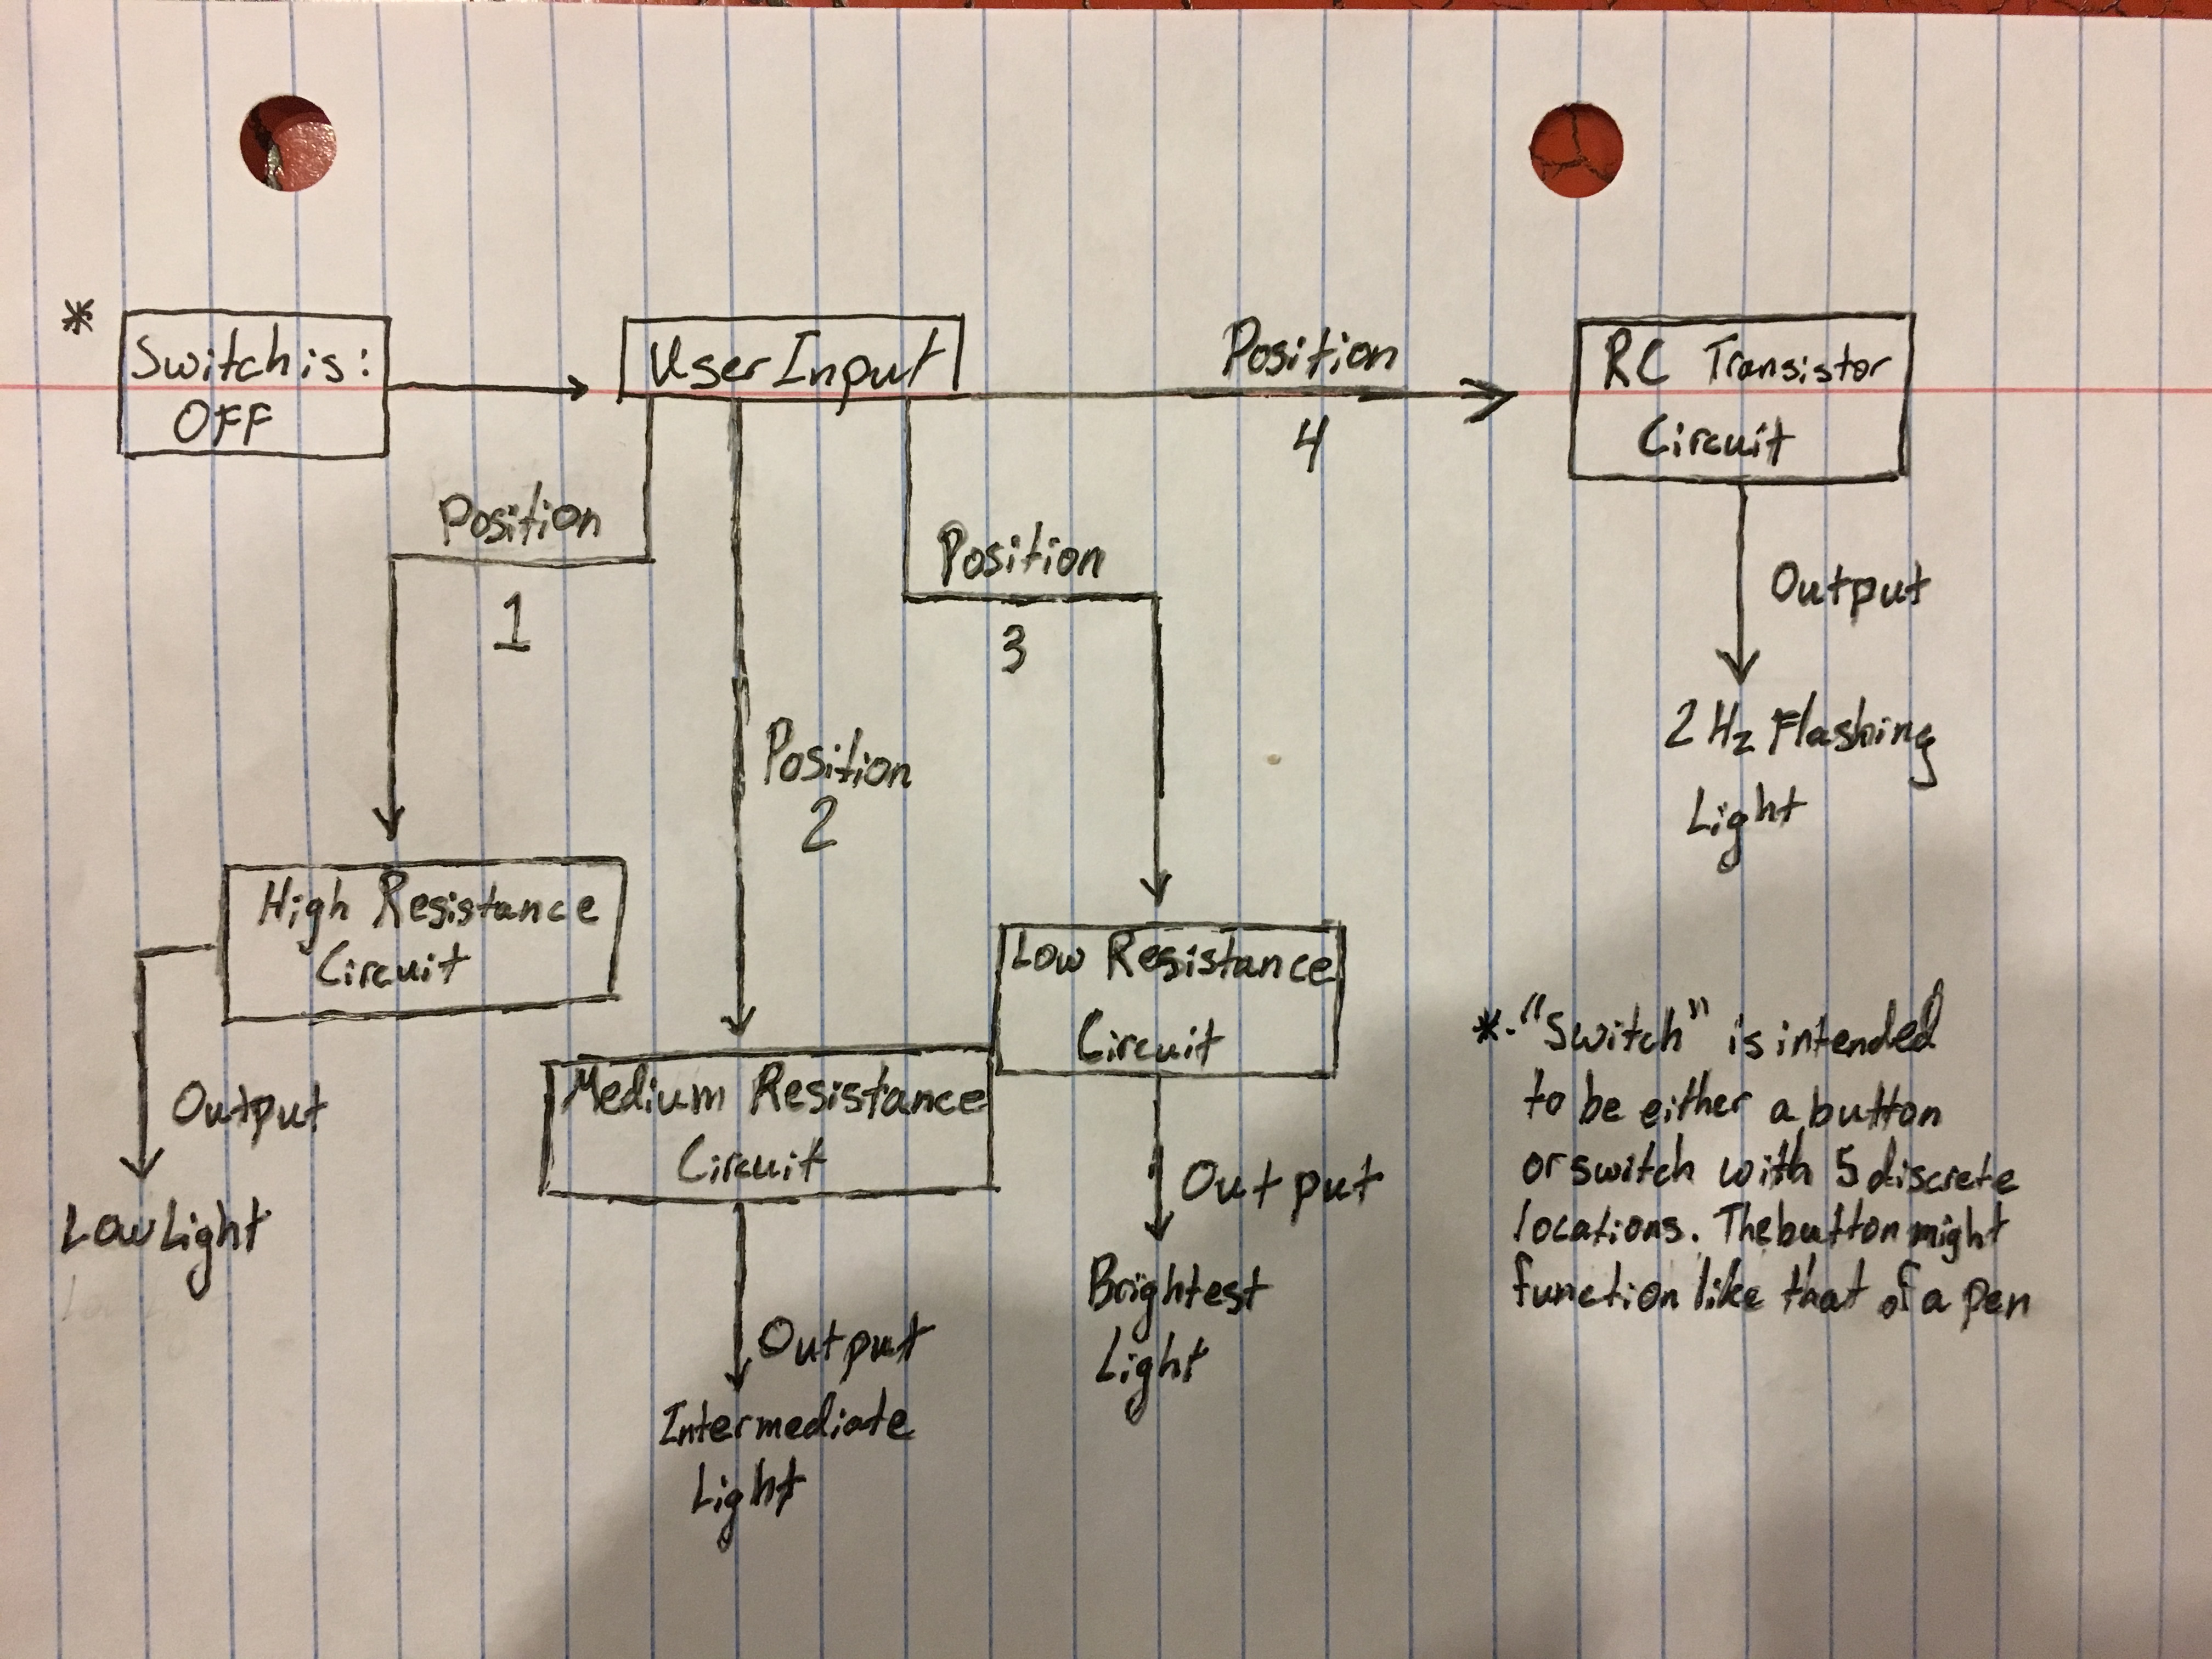 *
Switch is:
OFF
User Input
Position
1
Position
2
Position
3
Position
4
High Resistance
Circuit
Output
Low Light
Medium Resistance
Circuit
Output
Intermediate
Light
Low Resistance
Circuit
Output
Brightest
Light
RC Transistor
Circuit
Output
2 Hz Flashing
Light
*."Switch" is intended
to be either a button
or switch with 5 discrete
locations. The button might
function like that of a pen